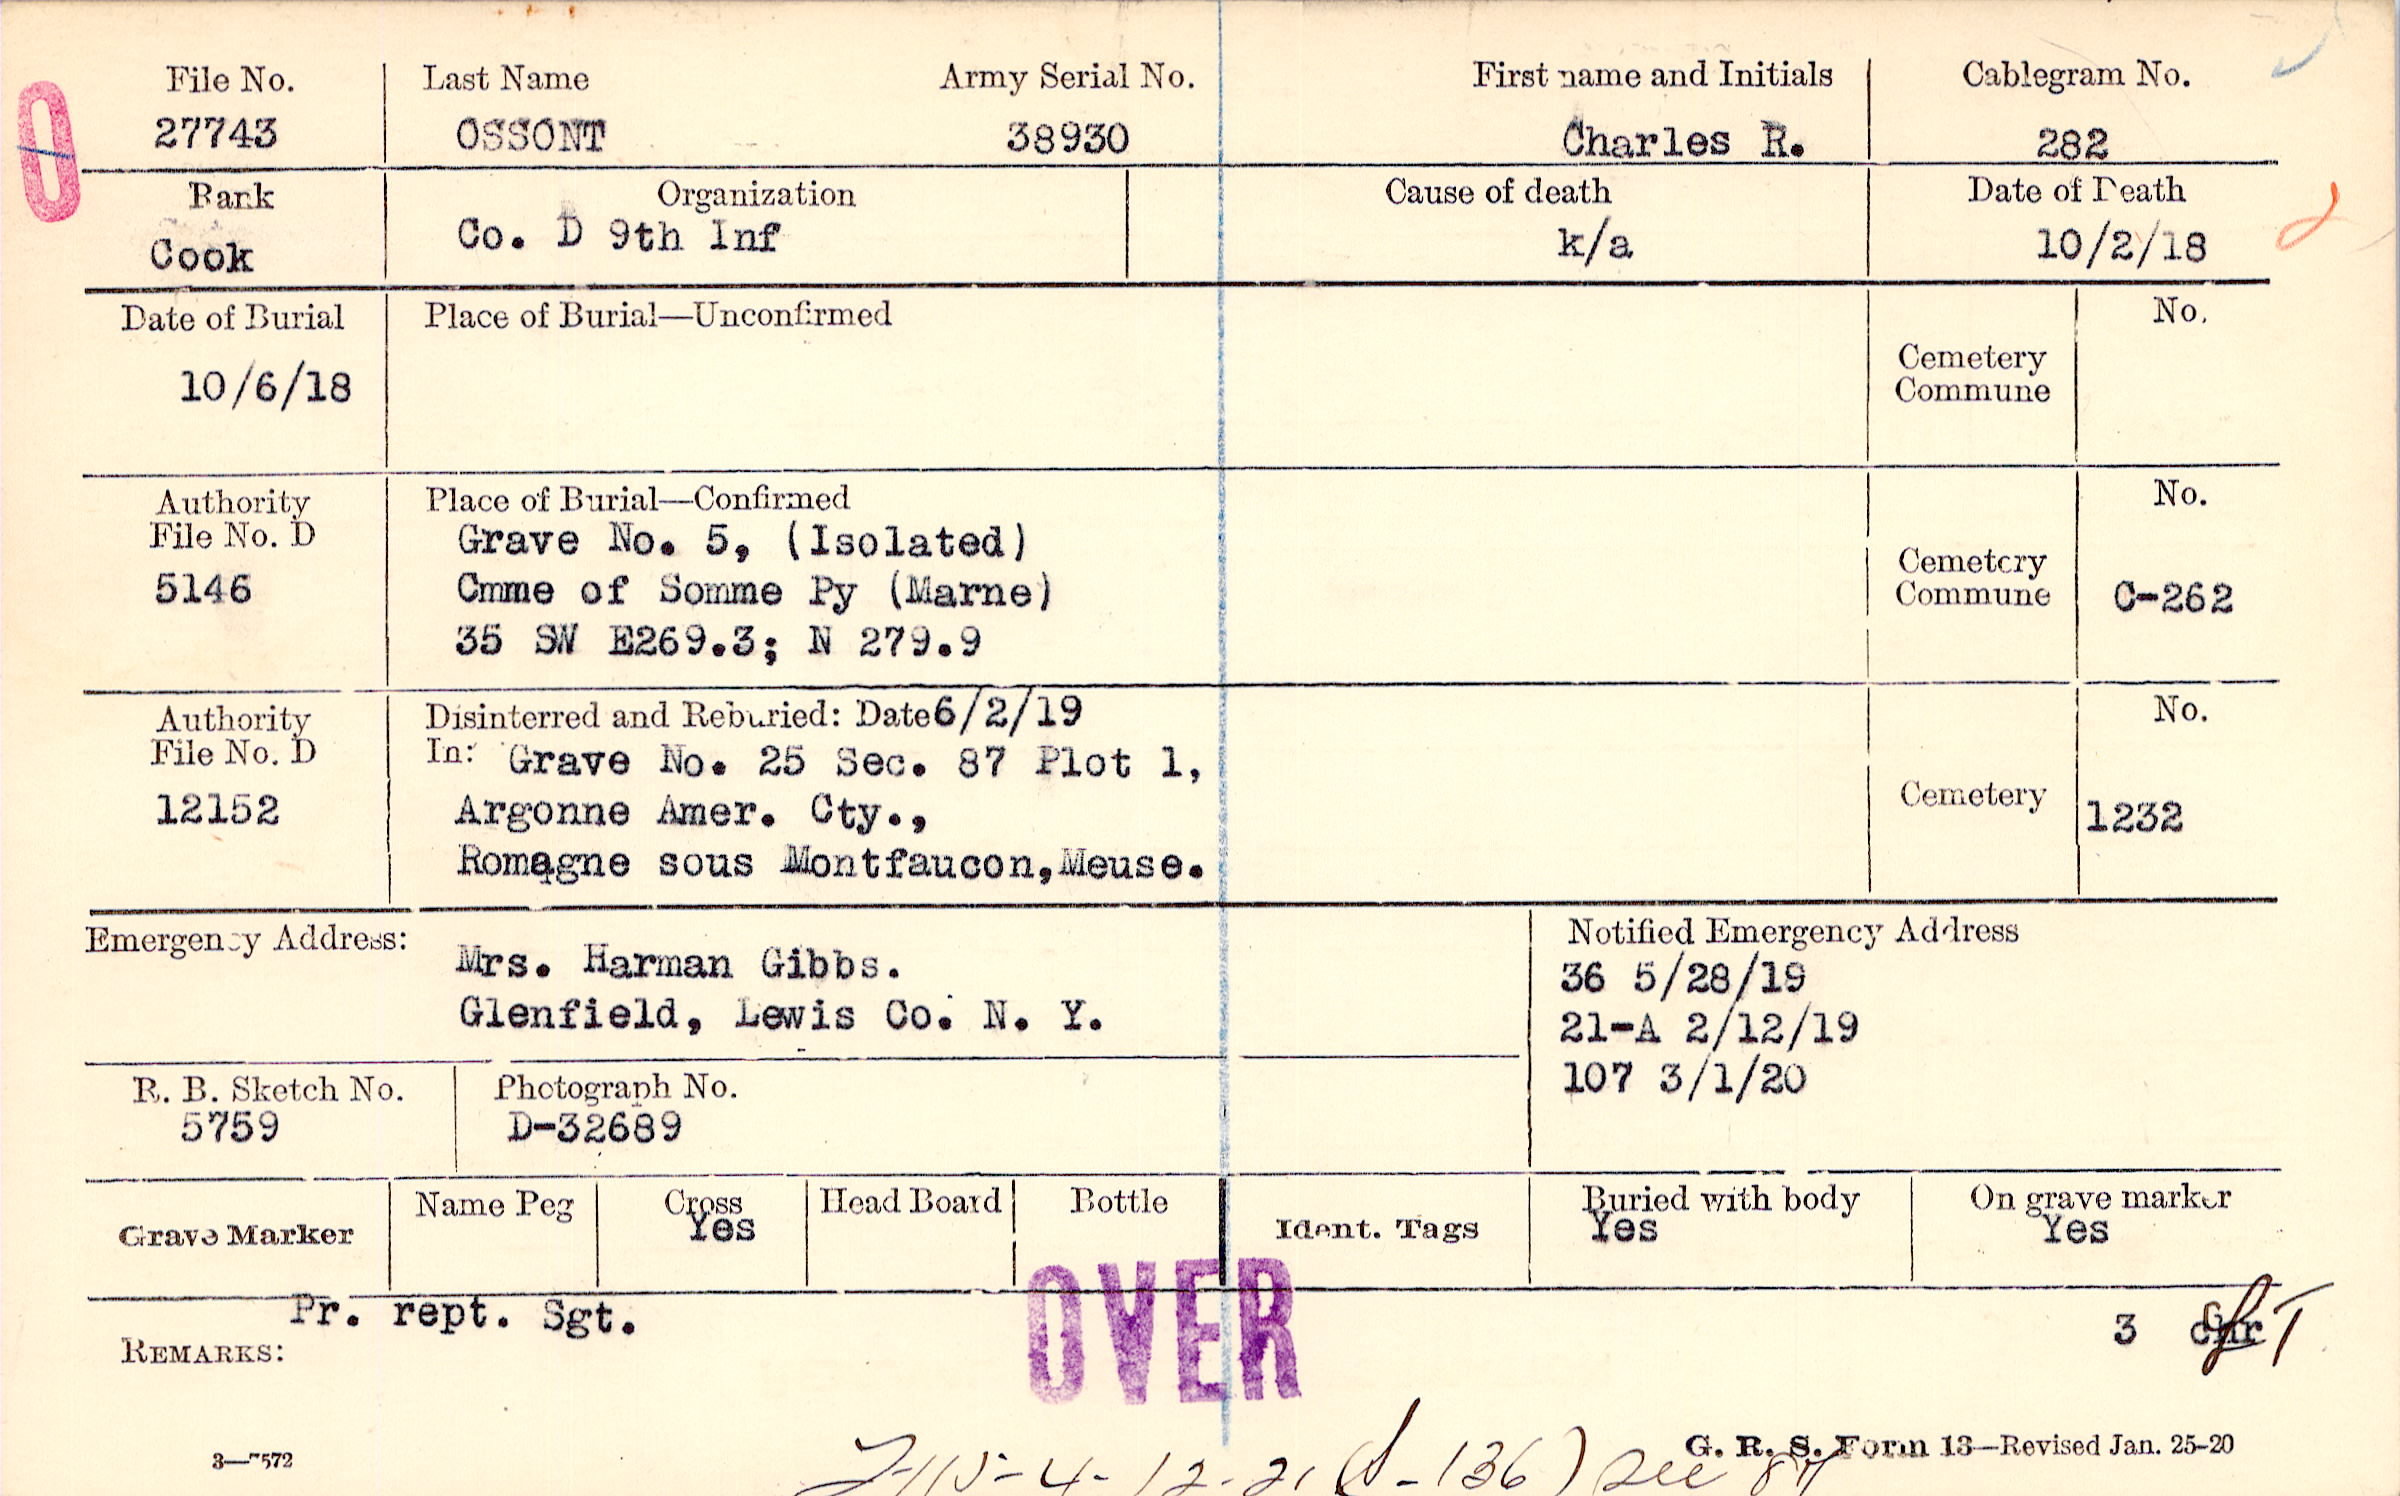 File No. Last Name Army Serial No. First name and Initials Cablegram No.
27743 OSSONT 38930 Charles R. 282
Rank Organization Cause of death Date of Death
Cook Co. D 9th Inf k/a 10/2/18
Date of Burial Place of Burial—Unconfirmed No.
10/6/18 Cemetery
Commune
Authority Place of Burial—Confirmed No.
File No. D Grave No. 5, (Isolated)
5146 Cmme of Somme Py (Marne) Cemetery
Commune C-262
35 SW E269.3; N 279.9
Authority Disinterred and Reburied: Date 6/2/19 No.
File No. D In: Grave No. 25 Sec. 87 Plot 1,
12152 Argonne Amer. Cty., Cemetery 1232
Romagne sous Montfaucon, Meuse.
Emergency Address: Notified Emergency Address
Mrs. Harman Gibbs. 36 5/28/19
Glenfield, Lewis Co. N. Y. 21-A 2/12/19
107 3/1/20
R. B. Sketch No. Photograph No.
5759 D-32689
Grave Marker Name Peg Cross Head Board Bottle Ident. Tags Buried with body On grave marker
Yes Yes Yes
Pr. rept. Sgt. OVER 3
REMARKS:
3—7572 G. R. S. Form 13—Revised Jan. 25-20
4-12-21 (S-136) see